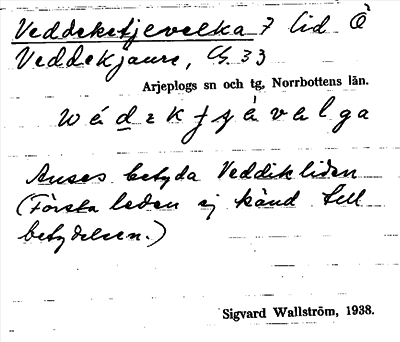 Veddeketjevelka 7 lid Ö
Veddekjaure, G 33
Arjeplogs sn och tg, Norrbottens län.
Anses betyda Veddikliden
(Första leden ej känd till
betydelsen.)
Sigvard Wallström, 1938.